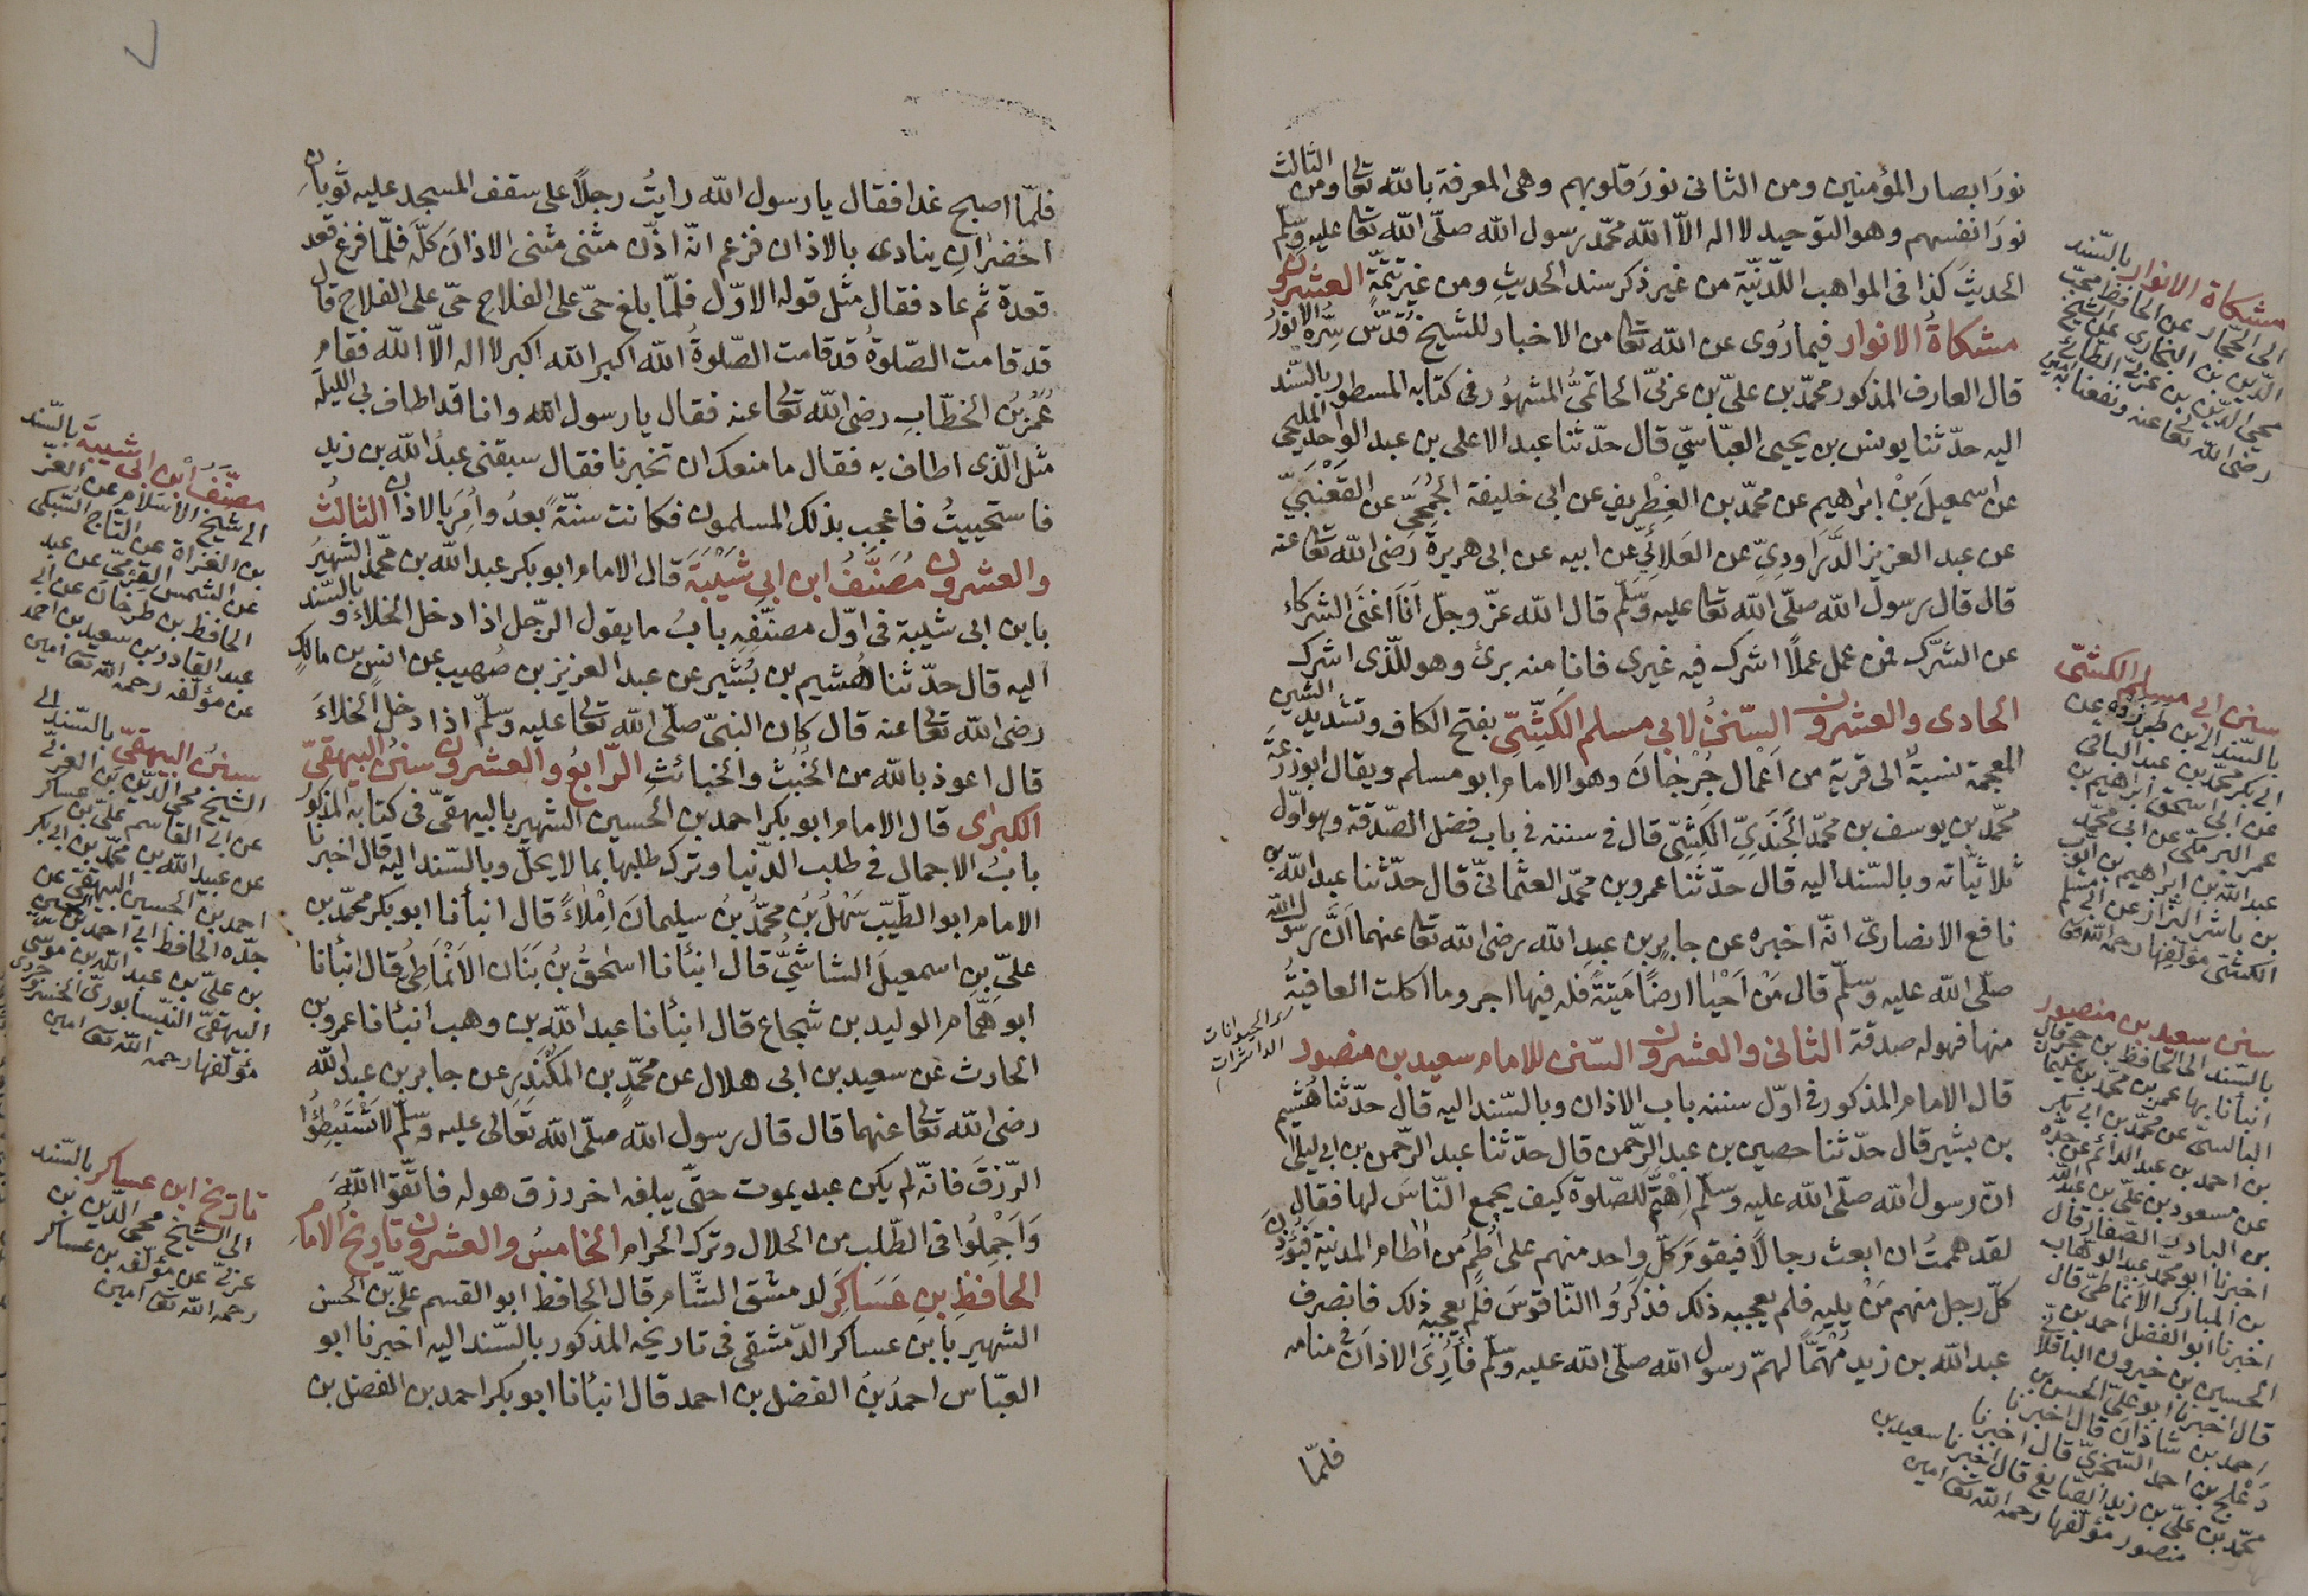 نورَ ابصار المؤمنين ومن الثانى نورَ قلوبهم وهى المعرفة بالله تعالى ومن الثالث
نورَ انفسهم وهو التوحيد لا اله الّا الله محمّد رسول الله صلّى الله تعالى عليه وسلّم
الحديثَ كذا فى المواهب اللّدنّيّة من غير ذكر سند الحديثِ ومن غير تتمّةٍ العشرون
مشكاةُ الانوار فيما رُوى عن الله تعالى من الاخبار للشيخ قُدّس سِرّه الانورُ
قال العارف المذكور محمّد بن علىّ بن عربىّ الحاتمىُّ المشهُور فى كتابه المسطور بالسّند
اليه حدّثنا يونس بن يحيى العبّاسىّ قال حدّثنا عبد الاعلى بن عبد الواحد المليحى
عن اسمعيلَ بْن ابراهيم عن محمّد بن الغِطْريف عن ابى خليفة الجُمَحِىّ عن القَعْنَبِىّ
عن عبد العزيز الدَّرَاوَدِىّ عن العَلائىّ عن ابيه عن ابى هريرة رضى الله تعالى عنه
قال قال رسول الله صلّى الله تعالى عليه وسلّم قال الله عزّ وجلّ اَنَا اغنَى الشركاء
عن الشرّك فمن عمل عملًا اشرك فيه غيرى فانا منه برئ وهو للّذى اشرك
الحادى والعشرون السّننُ لابى مسلم الكَشِّىّ بفتح الكاف وتشديد الشين
المعجمة نسبةً الى قرية من اَعْمال جُرْجانَ وهو الامام ابو مسلم ويقال ابو زرعَةَ
محمّد بن يوسف بن محمّد الجَنَدِىّ الكَشِّىّ قال فى سننه فى باب فضل الصّدقة وهو اوّل
ثلاثيّاته وبالسّند اليه قال حدّثنا عمرو بن محمّد العثمانىّ قال حدّثنا عبد الله بن
نافع الانصارىّ انّه اخبره عن جابر بن عبد الله رضى الله تعالى عنهما اَنّ رسول الله
صلّى الله عليه وسلّم قال مَنْ اَحْيَا ارضًا مَيْتَةً فله فيها اجر وما اكلت العافيةُ
منها فهو له صدقة الثانى والعشرون السّنن للامام سعيد بن منصور
قال الامام المذكور فى اوّل سننه باب الاذان وبالسّند اليه قال حدّثنا هُشَيم
بن بشير قال حدّثنا حصين بن عبد الرّحمن قال حدّثنا عبد الرّحمن بن ابى ليلى
انّ رسول الله صلّى الله عليه وسلّم اِهْتَمَّ للصّلوة كيف يجمع النّاسَ لها فقال
لقد هممتُ ان ابعث رجالًا فيقوم كلّ واحد منهم على اُطُمٍ من آطام المدينة فيُؤذن
كلّ رجل منهم مَنْ يليه فلم يعجبه ذلك فذكرُوا النّاقوسَ فلم يعجبه ذلك فانصرف
عبد الله بن زيد مُهْتَمًّا لهمّ رسول الله صلّى الله عليه وسلّم فَاُرِىَ الاذانَ فى منامه
فلمّا
مشكاة الانوار بالسّند
الى الحجّار عن الحافظ محبّ
الدّين بن النجّارى عن الشيخ
محيى الدّين بن عربىّ الطّائىّ
رضى الله تعالى عنه ونفعنا به آمين
سنن ابى مسلم الكشّىّ
بالسّند الى بن طبرزد عن
ابى بكر محمّد بن عبد الباقى
عن ابى اسحق ابراهيم بن
عمر البرمكىّ عن ابى محمّد
عبد الله بن ابراهيم بن ايّوب
بن ماشر البزّاز عن ابى مسلم
الكشّىّ مؤلّفها رحمه الله تعالى
اى الحيوانات
الدائرات
سنن سعيد بن منصور
بالسّند الى الحافظ بن حجر قال
انبأنا بها عمر بن محمّد بن سليمان
البالسىّ عن محمّد بن ابى بكر
بن احمد بن عبد الدائم عن جدّه
عن مسعود بن علىّ بن عبيد الله
بن البادر الصّفّار قال
اخبرنا ابو محمّد عبد الوهّاب
بن المبارك الانماطىّ قال
اخبرنا ابو الفضل احمد بن
الحسين بن خيرون الباقلّانى
قال اخبرنا ابو علىّ الحسن بن
احمد بن شاذان قال اخبرنا
دَعْلَج بن احمد السّجزىّ قال اخبرنا
محمّد بن علىّ بن زيد الصّايغ قال اخبرنا سعيد بن
منصور مؤلّفها رحمه الله تعالى آمين
فلمّا اصبح غدا فقال يا رسول الله رايتُ رجلًا على سقف المسجد عليه ثوبانِ
اخضرانِ ينادى بالاذان فزعم انّه اذّن مثنى مثنى الاذانَ كلَّه فلمّا فرغ قعد
قعدة ثم عاد فقال مثل قوله الاوّل فلمّا بلغ حىّ على الفلاح حىّ على الفلاح قال
قد قامت الصّلوةُ قد قامت الصّلوةُ الله اكبر الله اكبر لا اله الّا الله فقام
عُمَرُ بْنُ الخطّابِ رضى الله تعالى عنه فقال يا رسول الله وانا قد اطاف بى الليلة
مثل الّذى اطاف به فقال ما منعك ان تخبرنا فقال سبقنى عبدُ الله بن زيد
فاستحييتُ فاعجب بذلك المسلمون فكانت سنّةً بعدُ واُمِرَ بالاذان الثالثُ
والعشرون مُصَنَّفُ ابن ابى شَيْبَةَ قال الامام ابو بكر عبد الله بن محمّد الشهيرُ
بابن ابى شيبة فى اوّل مصنّفِهِ بابُ ما يقول الرّجل اذا دخل الخلاءَ وبالسّند
اليه قال حدّثنا هُشيم بن بُشَير عن عبد العزيز بن صُهيب عن انس بن مالكٍ
رضى الله تعالى عنه قال كان النبىّ صلّى الله تعالى عليه وسلّم اذا دخل الخلاءَ
قال اعوذ بالله من الخُبْثِ والخبائثِ الرّابعُ والعشرون سننُ البيهقىّ
الكبرى قال الامام ابو بكر احمد بن الحسين الشهير بالبيهقىّ فى كتابه المذكور
بابُ الاجمال فى طلب الدّنيا وترك طلبها بما لا يحلّ وبالسّند اليه قال اخبرنا
الامام ابو الطّيّب سَهْلُ بْنُ محمّدُ بنُ سليمانَ اِمْلاءً قال انبأنا ابو بكر محمّد بن
علىّ بن اسمعيلَ الشاشىُّ قال انبأنا اسحٰقُ بْنُ بَنَان الاَنْمَاطِىُّ قال انبأنا
ابو همّام الوليد بن شجاع قال انبأنا عبد الله بن وهب انبأنا عمرو بن
الحارث عن سعيد بن ابى هلال عن محمّدِ بن المُنْكَدِرِ عن جابر بن عبد الله
رضى الله تعالى عنهما قال قال رسول الله صلّى الله تعالى عليه وسلّم لا تَسْتَبْطِؤُا
الرّزقَ فانّه لم يكن عبد يموت حتّى يبلغه اخر رزق هو له فاتّقوا اللّٰهَ
وَاَجْمِلُوا فى الطّلب من الحلال وترك الحرام الخامسُ والعشرون تاريخُ الامام
الحافظِ بن عَسَاكِرَ لدمشق الشّام قال الحافظ ابو القسم علىّ بن الحسن
الشهير بابن عساكر الدّمشقى فى تاريخه المذكور بالسّند اليه اخبرنا ابو
العبّاس احمدُ بْنُ الفضل بن احمد قال انبأنا ابو بكر احمد بن الفضل بن
مصنَّفُ ابن ابى شيبةَ بالسّند
الى شيخ الاسلام عن العزّ
بن الفراة عن التاج السّبكى
عن الشمس القزمىّ عن عبد
الحافظ بن طرخان عن ابى
عبد القادر بن سعيد بن احمد
عن مؤلّفه رحمه الله تعالى آمين
سننُ البيهقىّ بالسّند الى
الشيخ محيى الدّين بن العربىّ
عن ابى القاسم علىّ بن عساكر
عن عبيد الله بن محمّد بن ابى بكر
احمد بن الحسين البيهقىّ عن
جدّه الحافظ ابى احمد بن الحسين
بن علىّ بن عبد الله بن موسى
البيهقىّ النّيسابورىّ الخسروجردى
مؤلّفها رحمه الله تعالى آمين
تاريخ ابن عساكر بالسّند
الى الشيخ محيى الدّين بن
عربىّ عن مؤلّفه بن عساكر
رحمه الله تعالى آمين